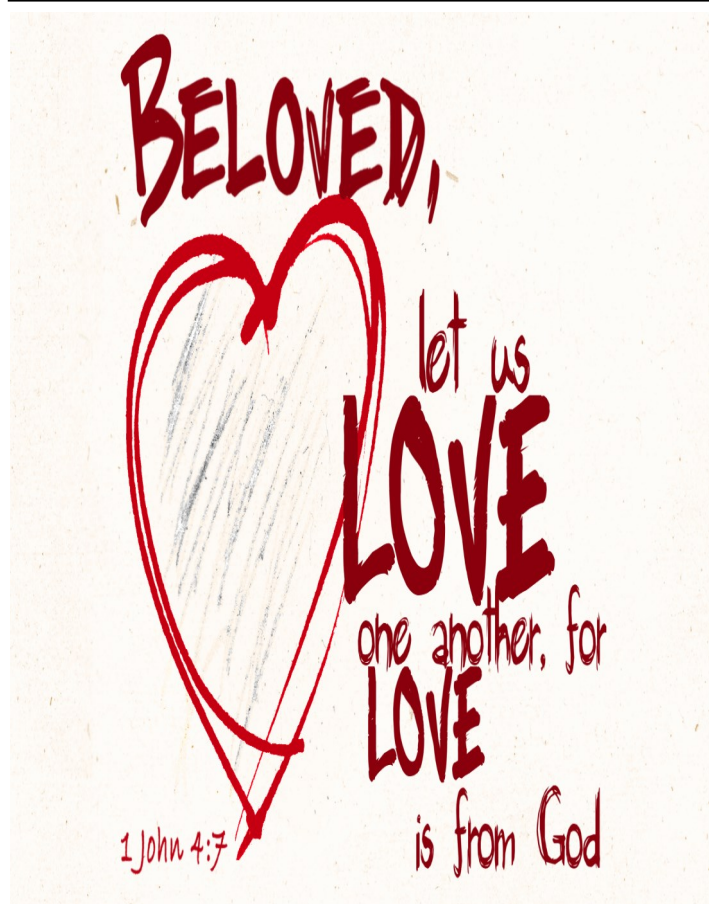 BELOVED,
let us
LOVE
one another, for
LOVE
is from God
1 John 4:7